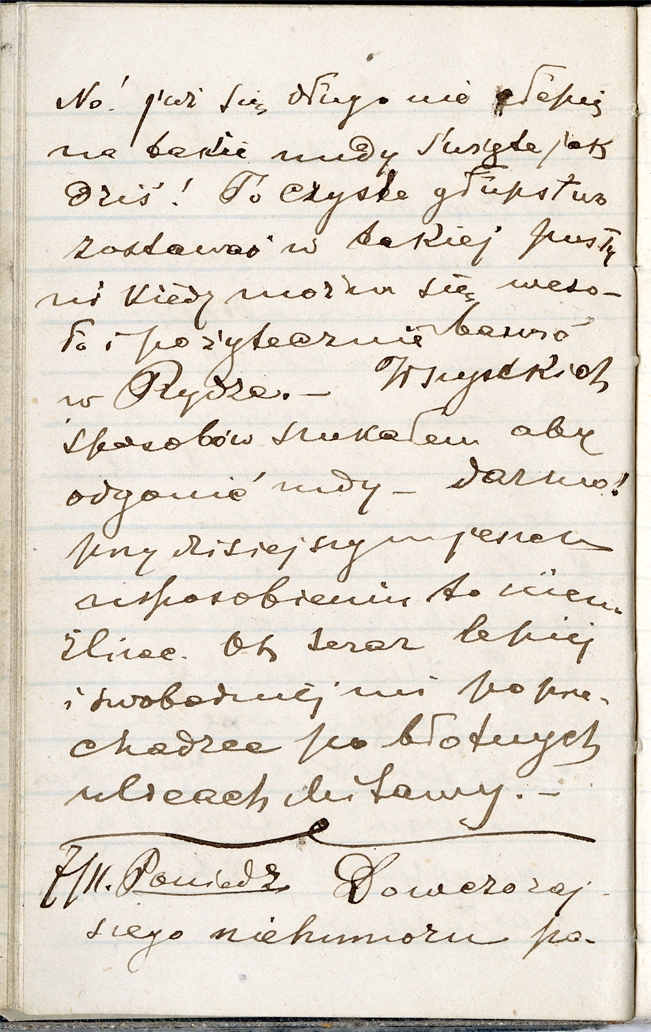 No! już się długo nie złapię
na takie nudy święte jak
dziś! To czyste głupstwo
zostawać w takiej pusty
ni kiedy można się weso-
ło i pożytecznie bawić
w Rydze. — Wszystkich
sposobów szukałem aby
odgonić nudy — darmo!
przy dzisiejszym jeszcze
usposobieniu to niem-
żliwe. Ot, teraz lepiej
i swobodniej mi po prze-
chadzce po błotnych
ulicach Mitawy. —
7/II. Poniedz Do wczoraj-
szego niehumoru po-